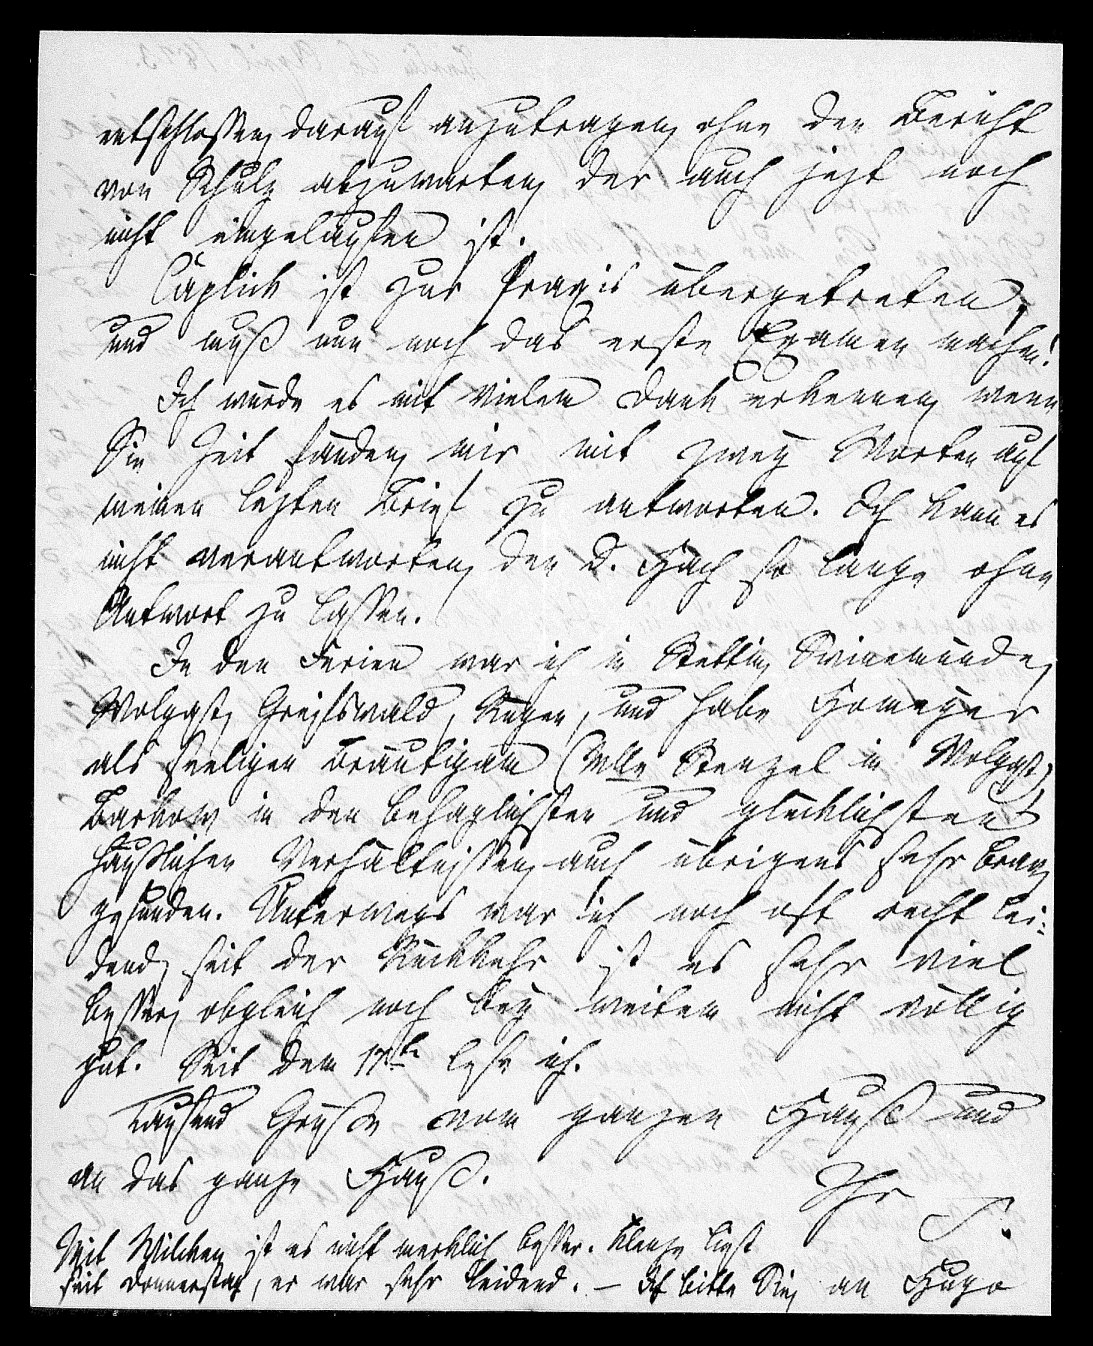 entschlossen, darauf anzutragen, ohne den Bericht
von Schulz abzuwarten, der auch jezt noch
nicht eingelaufen ist.
ist zur Praxis übergetreten,
und muß nun noch das erste Examen machen!
Ich würde es mit vielem Dank erkennen, wenn
Sie Zeit fänden, mir mit zwey Worten auf
meinen lezten Brief zu antworten. Ich kann es
nicht verantworten, den D. Hach so lange ohne
Antwort zu lassen.
In den Ferien war ich in Stettin, Swinemünde,
Wolgast, Greifswald, Rügen, und habe Homeyer
als seeligen Bräutigam (Mlle Stenzel in Wolgast),
Barkow in den behaglichsten und glücklichsten
häuslichen Verhältnissen, auch übrigens sehr brav,
gefunden. Unterwegs war ich noch oft recht lei-
dend, seit der Rückkehr ist es sehr viel
besser, obgleich noch bey weitem nicht völlig
gut. Seit dem 17ten lese ich.
Tausend Grüße vom ganzen Hauß und
an das ganze Hauß.
Ihr S.
Mit Wilken ist es nicht merklich besser. Klenze liest
seit Donnerstag, er war sehr leidend. – Ich bitte Sie, an Hugo